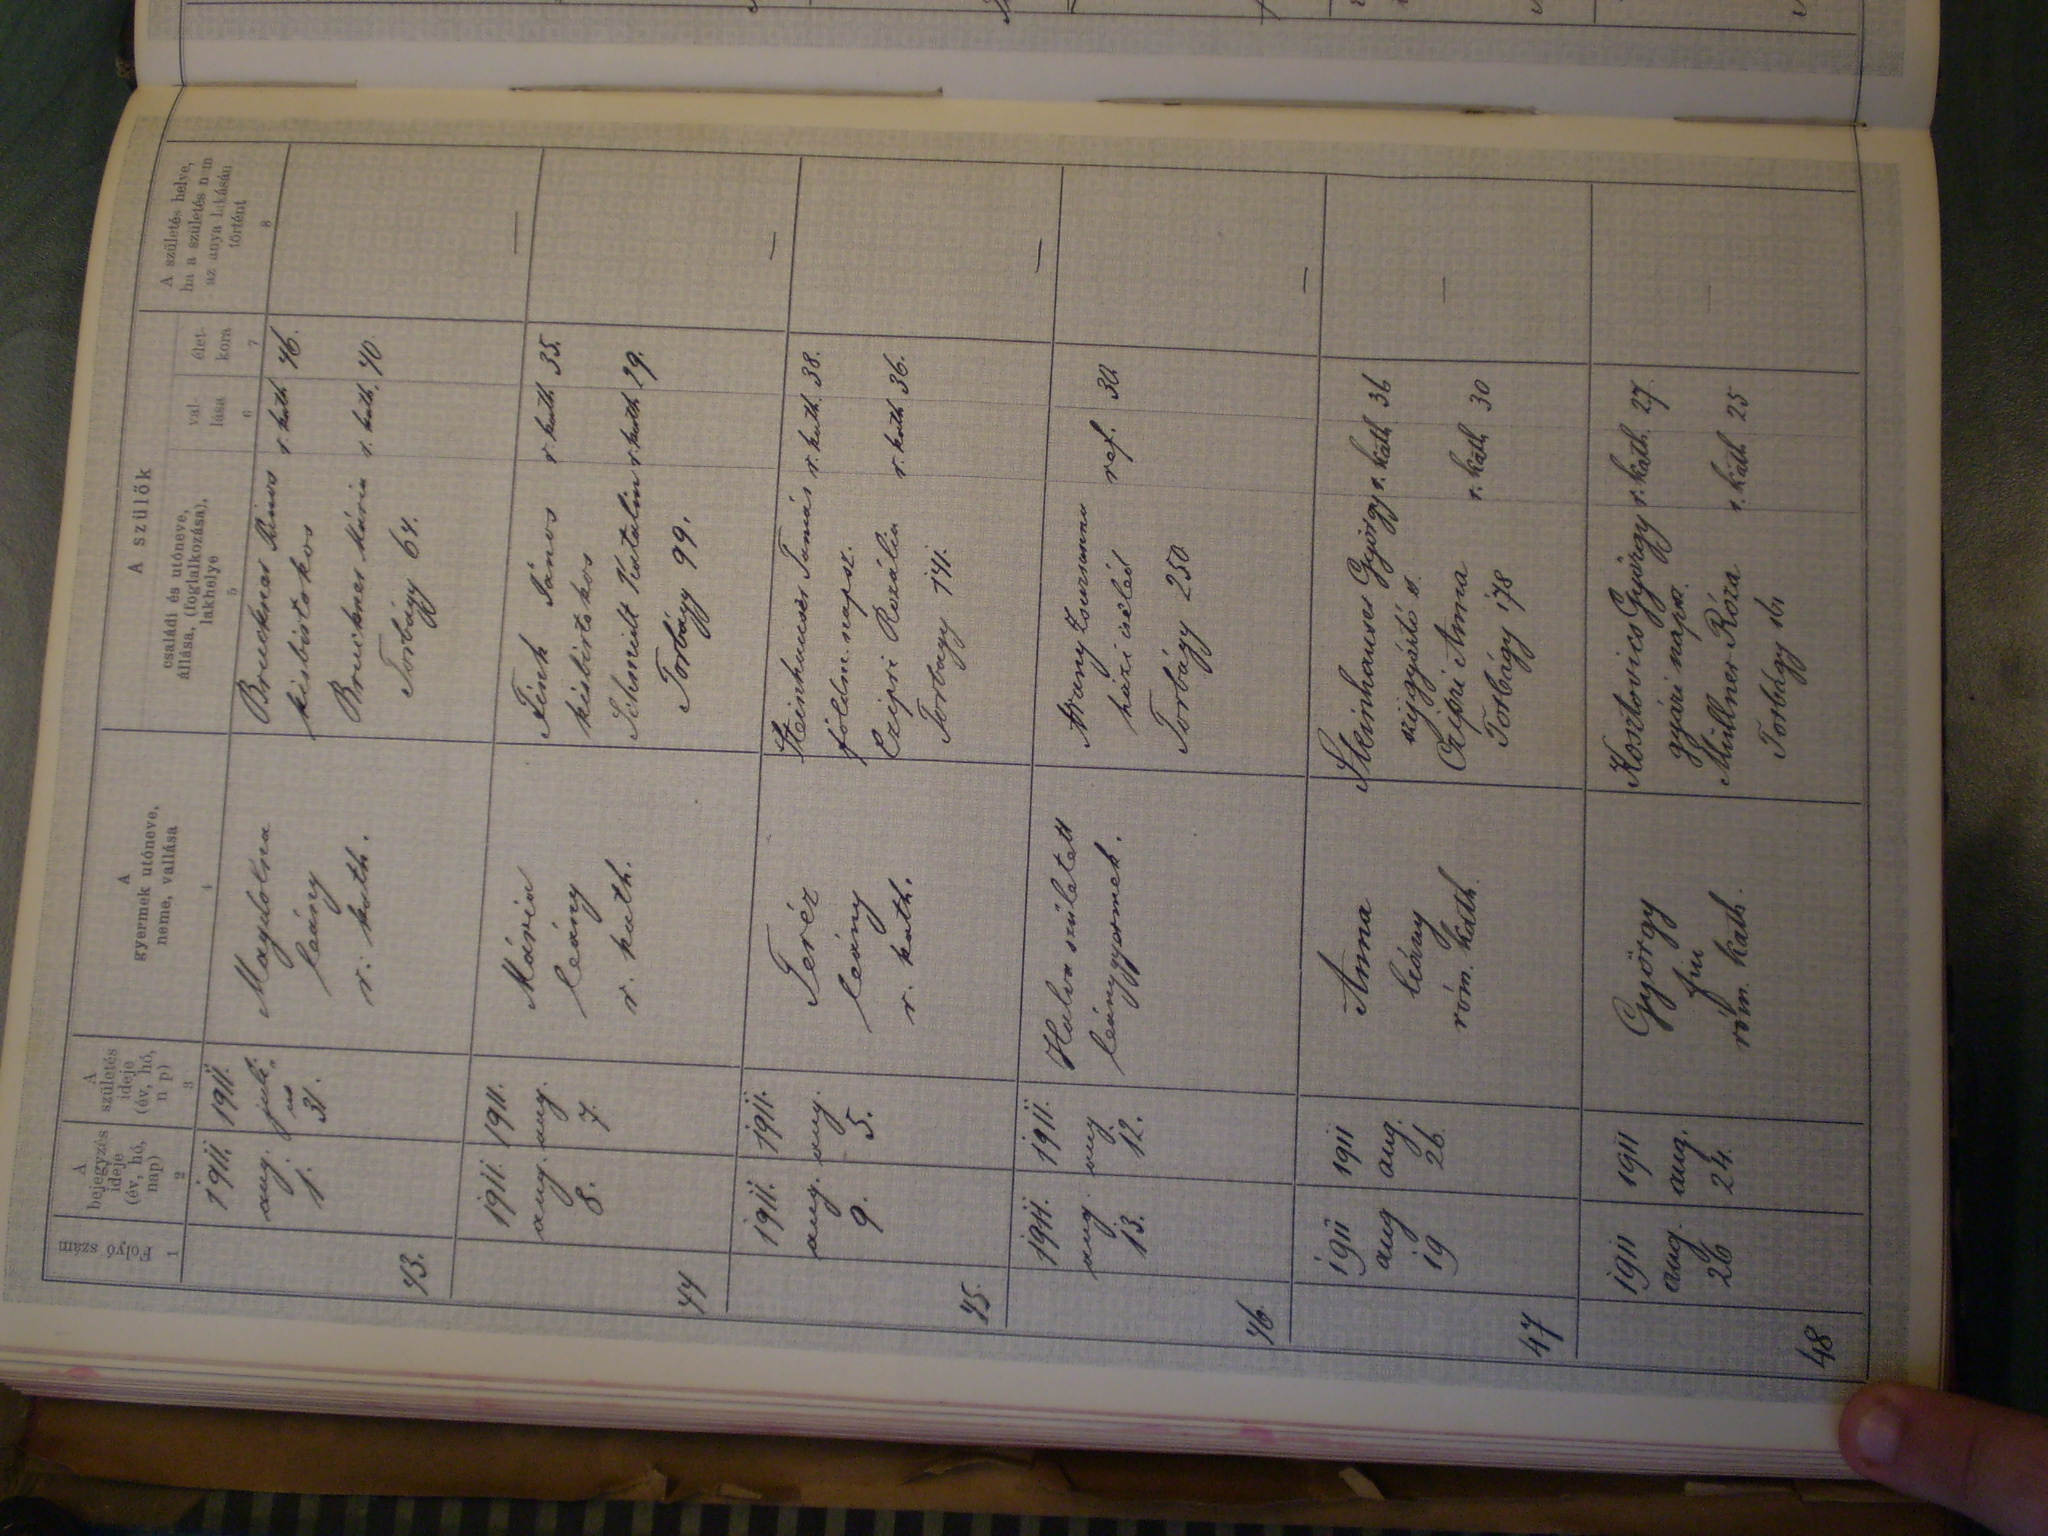 A szülők
Folyó szám
A
bejegyzés
ideje
(év, hó,
nap)
A
születés
ideje
(év, hó,
n p)
A
gyermek utóneve,
neme, vallása
családi és utóneve,
állása, (foglalkozása),
lakhelye
val-
lása
élet-
kora
A születés helye,
ha a születés n m
az anya lakásán
történt
1
2
3
4
5
6
7
8
43.
1911.
aug.
1.
1911.
juli-
us
31.
Magdolna
leány
r. kath.
Bruckner János
kisbirtokos
Bruckner Mária
Torbágy 64.
r. kath.
r. kath.
46.
40
44
1911.
aug.
8.
1911.
aug.
7.
Mária
leány
r. kath.
Fink János
kisbirtokos
Schmidt Katalin
Torbágy 99.
r kath.
r. kath
35.
29.
—
45.
1911.
aug.
9.
1911.
aug.
5.
Teréz
leány
r. kath.
Steinhauser Tamás
földm. napsz.
Czipri Rozália
Torbágy 141.
r. kath.
r. kath
38.
36.
—
46.
1911.
aug.
13.
1911.
aug.
12.
Halva született
leánygyermek.
Arany Zsuzsanna
házi cseléd
Torbágy 250
ref.
30.
—
47
1911
aug
19
1911
aug.
Anna
leány
róm. kath.
Steinhauser György
szijgyártó s.
Czipri Anna
Torbágy 178
r. kath.
r. kath.
36
30
—
48
1911
aug.
26
1911
aug.
24.
György
fiu
róm. kath.
Kosztovics György
gyári napsz.
Müllner Róza
Torbágy 161
r. kath.
r. kath
27
25
—